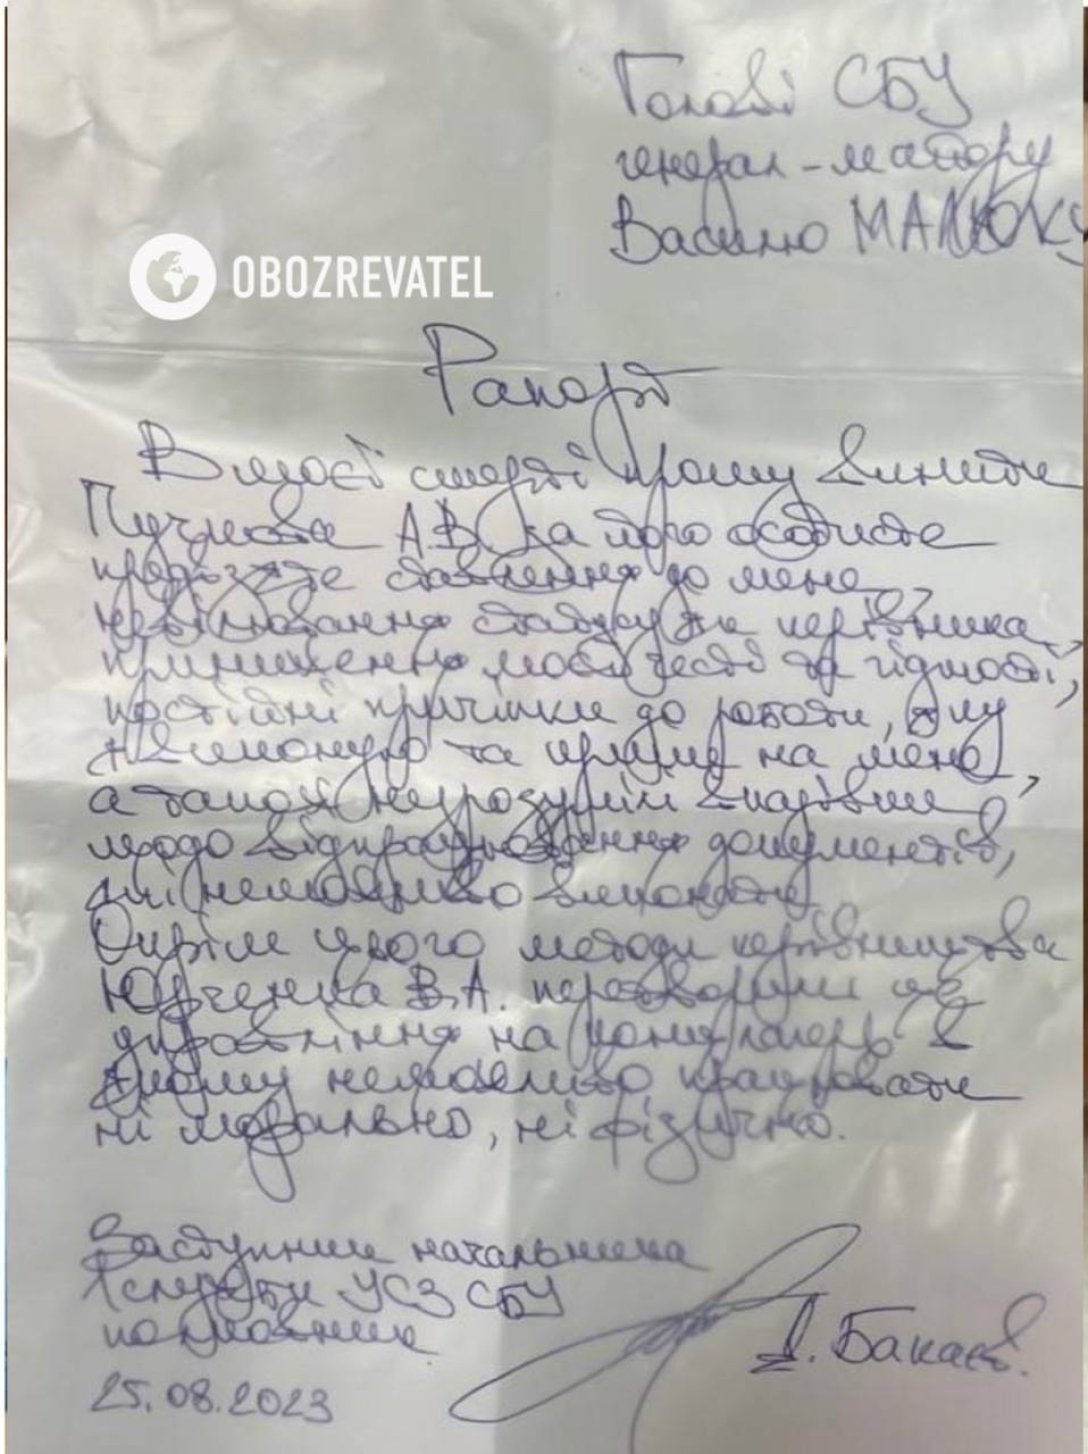 Голові СБУ
генерал-майору
Василю МАЛЮКУ
OBOZREVATEL
Рапорт
В моєї смерті прошу винити
А.В. за його особисте
предвзяте ставлення до мене,
нівелювання статусу як керівника,
приниження моєї честі та гідності,
постійні причіпки до роботи, яку
я виконую та крики на мене,
а також незрозумілі вказівки
щодо відпрацювання документів,
які неможливо виконати.
Окрім цього методи керівництва
Юрченка В.А. перетворили це
управління на концлагерь в
якому неможливо працювати
ні морально, ні фізично.
Заступник начальника
1 служби УСЗ СБУ
полковник
Бакаєв.
25.08.2023